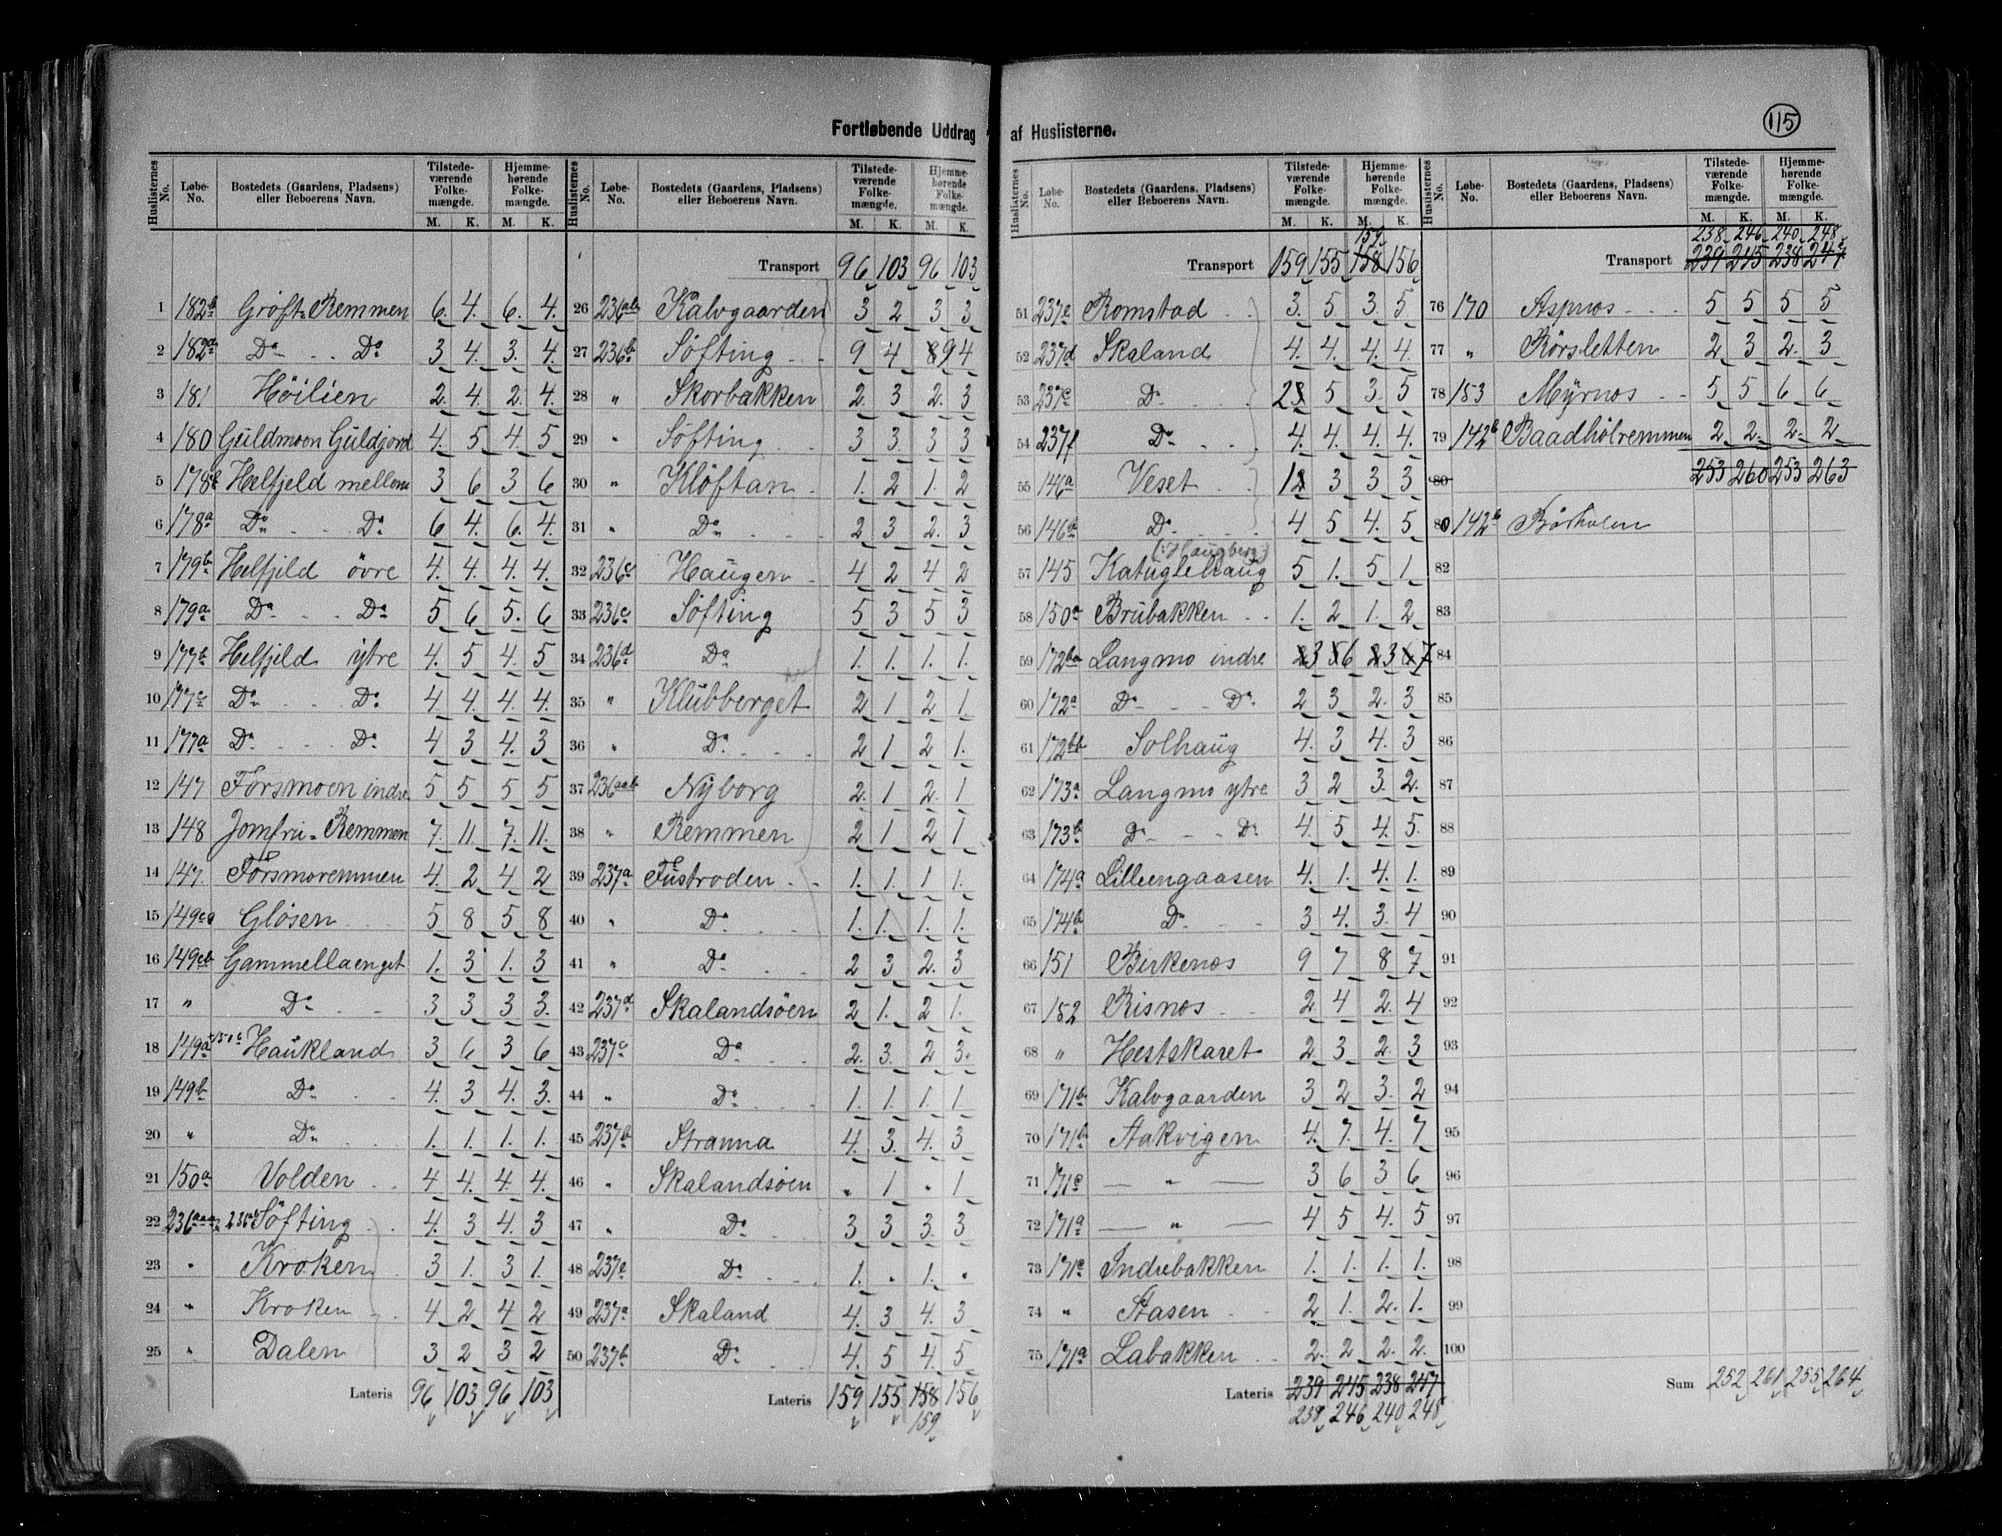 Fortløbende Uddrag af Huslisterne.
115
Huslisternes No. | Løbe-No. | Bostedets (Gaardens, Pladsens) eller Beboerens Navn. | Tilstedeværende Folkemængde. M. K. | Hjemmehørende Folkemængde. M. K.
1 182b Grøft-Remmen 6. 4. 6. 4.
2 182a Do Do 3 4. 3. 4.
3 181 Høilien 2. 4. 2. 4.
4 180 Guldmoen Guldjord 4. 5 4. 5
5 178b Helfjeld mellem 3 6 3 6
6 178a Do Do 6 4. 6. 4.
7 179b Helfjeld øvre 4. 4. 4. 4.
8 179a Do Do 5 6 5. 6
9 177b Helfjeld ytre 4. 5 4. 5
10 177c Do Do 4 4. 4. 4.
11 177a Do Do 4 3 4. 3
12 147 Forsmoen indre 5 5 5 5
13 148 Jomfru-Remmen 7. 11. 7. 11.
14 147. Forsmoremmen 4. 2 4 2
15 149ca Gløsen 5 8 5 8
16 149cb Gammellaenget 1. 3 1. 3
17 " Do 3 3 3 3.
18 149a 150c Haukland 3 6 3 6
19 149b Do 4. 3 4. 3.
20 " Do 1. 1. 1. 1.
21 150a Volden 4 4. 4. 4.
22 236aaa 236ab Søfting 4. 3 4. 3
23 " Kroken 3 1. 3 1.
24 " Kroken 4 2 4 2
25 " Dalen 3 2 3 2
Lateris 96 103 96 103
Huslisternes No. | Løbe-No. | Bostedets (Gaardens, Pladsens) eller Beboerens Navn. | Tilstedeværende Folkemængde. M. K. | Hjemmehørende Folkemængde. M. K.
Transport 96 103 96 103
26 236ab Kalvgaarden 3 2 3 3
27 236b Søfting 9 4 8 9 4
28 " Skorbakken 2 3 2. 3
29 " Søfting 3 3 3 3
30 " Kløftan 1. 2 1. 2
31 " Do 2 3 2. 3
32 236c Haugen 4 2 4 2
33 236c Søfting 5 3 5 3
34 236d Do 1. 1. 1. 1.
35 " Klubberget 2 1 2 1.
36 " Do 2 1 2 1.
37 236aab Nyborg 2. 1 2. 1
38 " Remmen 2 1 2 1
39 237a Fustroden 1. 1. 1 1.
40 " Do 1. 1. 1. 1.
41 " Do 2 3 2. 3
42 237d Skalandsöen 2 1. 2 1.
43 237c Do 2. 3. 2 3.
44 " Do 1. 1. 1. 1
45 237b Stranna 4. 3. 4. 3
46 " Skalandsöen " 1 " 1
47 " Do 3 3 3. 3
48 237a Do 1. " 1. "
49 237a Skaland 4. 3 4. 3
50 237b Do 4. 5 4. 5
Lateris 159 155 158 156
159
Huslisternes No. | Løbe-No. | Bostedets (Gaardens, Pladsens) eller Beboerens Navn. | Tilstedeværende Folkemængde. M. K. | Hjemmehørende Folkemængde. M. K.
159
Transport 159 155 158 156
51 237e Romstad 3. 5 3. 5
52 237d Skaland 4. 4. 4. 4.
53 237c Do 2 3 5 3 5
54 237f Do 4. 4. 4. 4.
55 146a Veset 1 2 3 3 3
56 146b Do 4 5 4. 5
(: Haugberg)
57 145 Katuglehaug 5 1. 5 1
58 150a Brubakken 1. 2 1. 2
59 172ba Langmo indre 2 3 5 6 2 3 6 7
60 172a Do Do 2 3 2. 3
61 172bb Solhaug 4. 3 4. 3
62 173a Langmo ytre 3 2 3. 2.
63 173b Do Do 4. 5 4. 5.
64 174a Lilleengaasen 4. 1. 4. 1.
65 174b Do 3 4. 3. 4
66 151 Birkenos 9 7 8 7
67 152 Risnos 2 4 2. 4
68 " Hestskaret 2 3 2. 3
69 171b Kalvgaarden 3 2 3. 2
70 171b Stakvigen 4. 7. 4. 7
71 171c — " — 3 6 3 6
72 171a — " — 4 5 4. 5
73 171c Indrebakken 1. 1. 1. 1.
74 " Stasen 2 1. 2. 1.
75 171a Labakken 2. 2 2. 2.
Lateris 239 245 238 247
238 246 240 248
Huslisternes No. | Løbe-No. | Bostedets (Gaardens, Pladsens) eller Beboerens Navn. | Tilstedeværende Folkemængde. M. K. | Hjemmehørende Folkemængde. M. K.
238 246 240 248
Transport 239 245 238 247
76 170 Aspnos 5 5 5 5
77 " Rørsletten 2 3 2. 3
78 153 Myrnos 5 5 6 6
79 142b Baadhølremmen 2. 2. 2. 2
80 253 260 253 263
80 142b Börholen
82
83
84
85
86
87
88
89
90
91
92
93
94
95
96
97
98
99
100
Sum 252 261 255 264